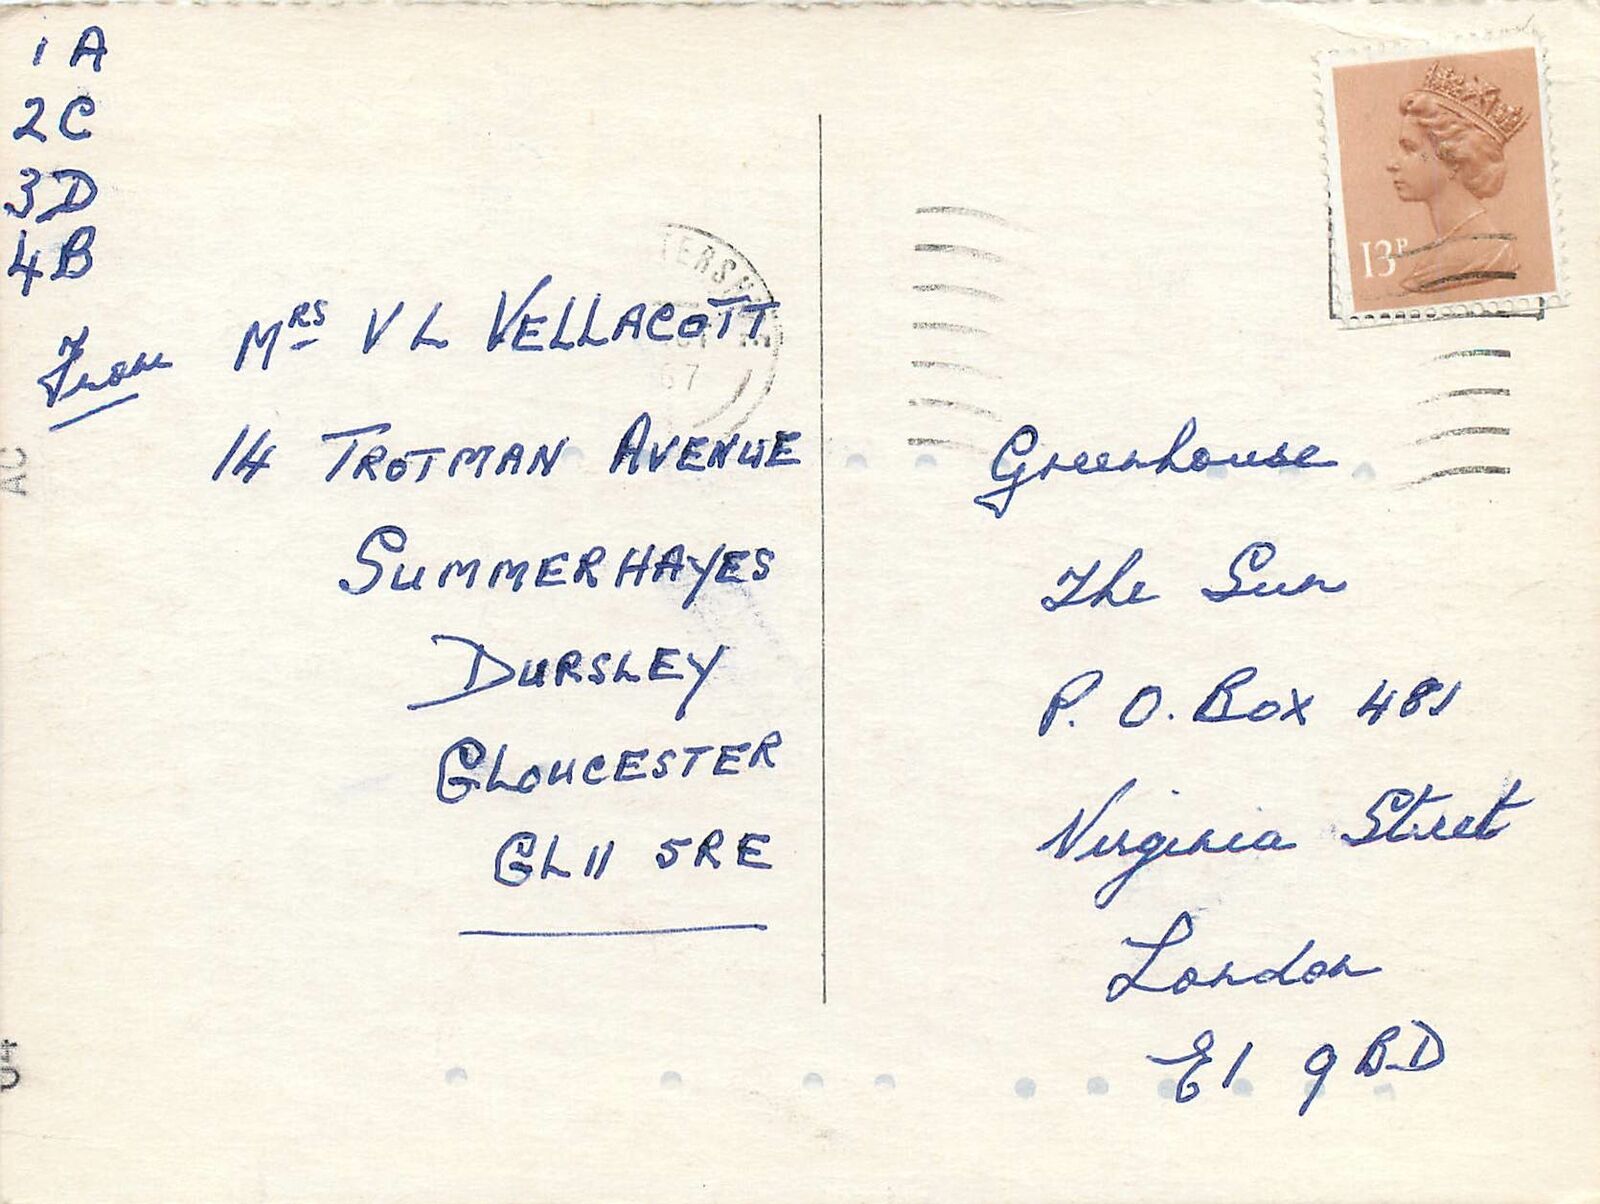 1 A
2 C
3 D
4 B
From Mrs V L VELLACOTT
14 TROTMAN AVENUE
SUMMERHAYES
DURSLEY
GLOUCESTER
GL11 5RE
13P
Greenhouse
The Sun
P. O. Box 481
Virginia Street
London
E1 9BD
TERSH
AC